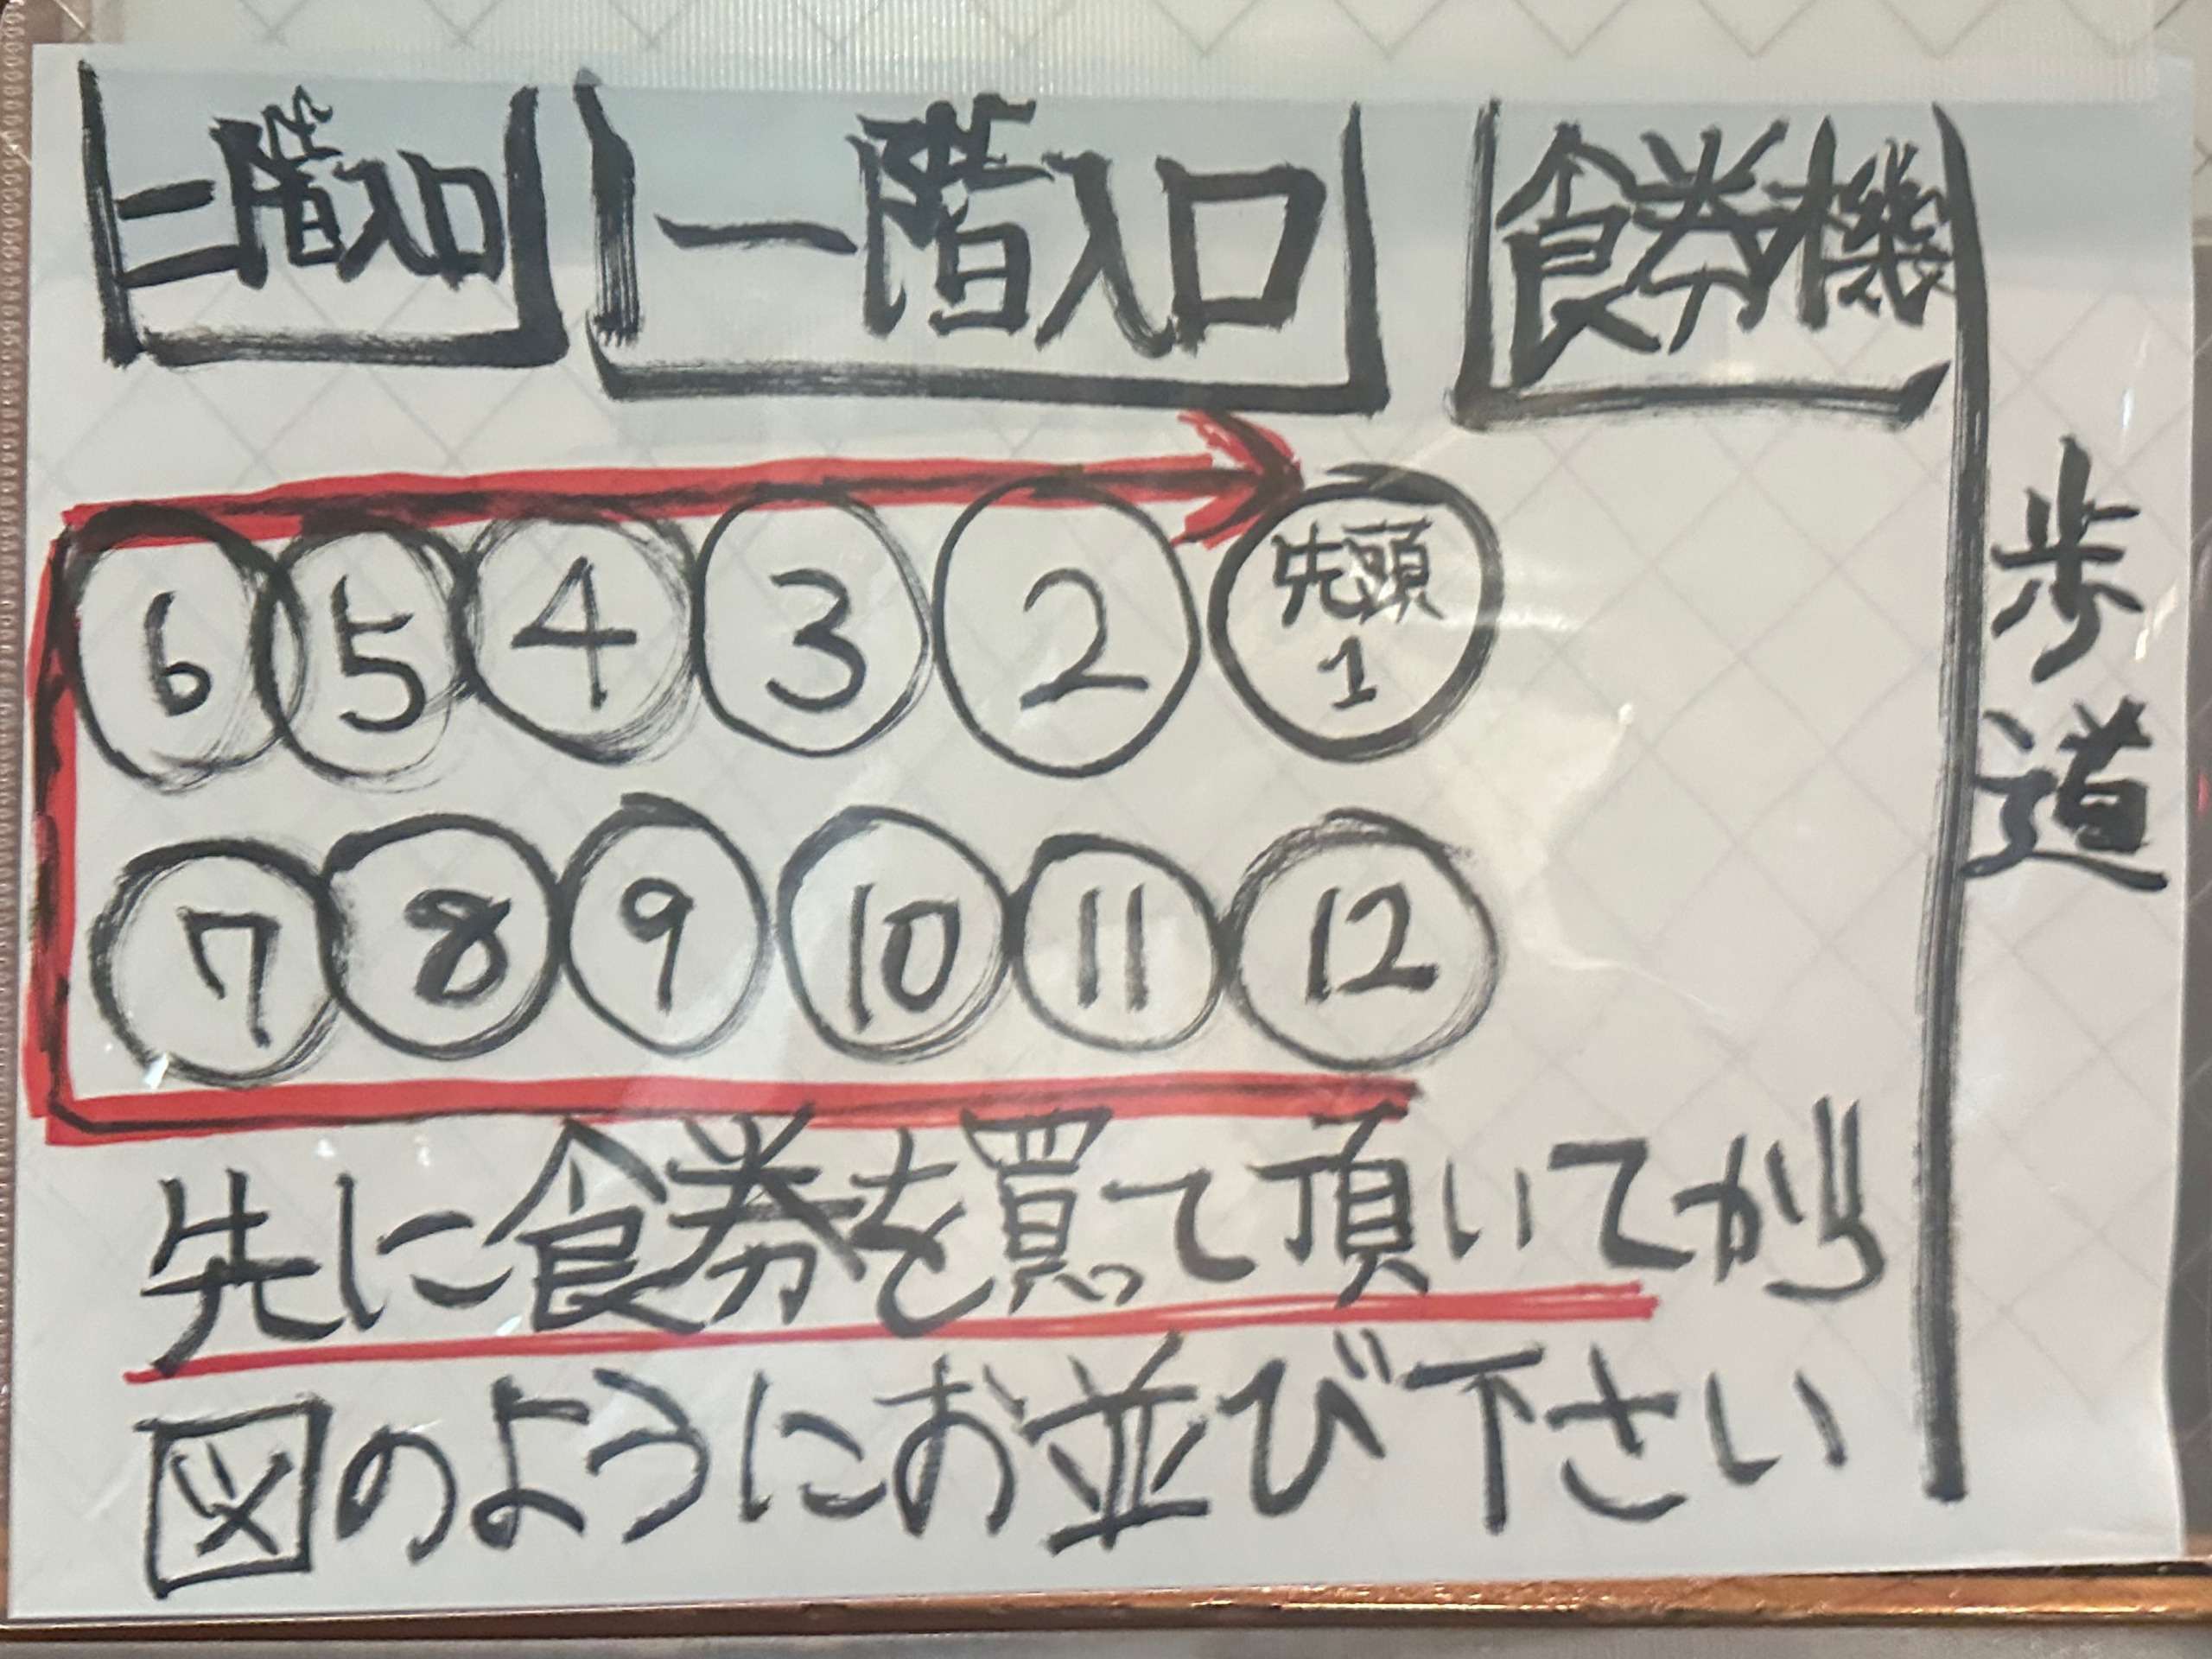 二階入口 一階入口 食券機
歩道
6 5 4 3 2 先頭1
7 8 9 10 11 12
先に食券を買って頂いてから
図のようにお並び下さい